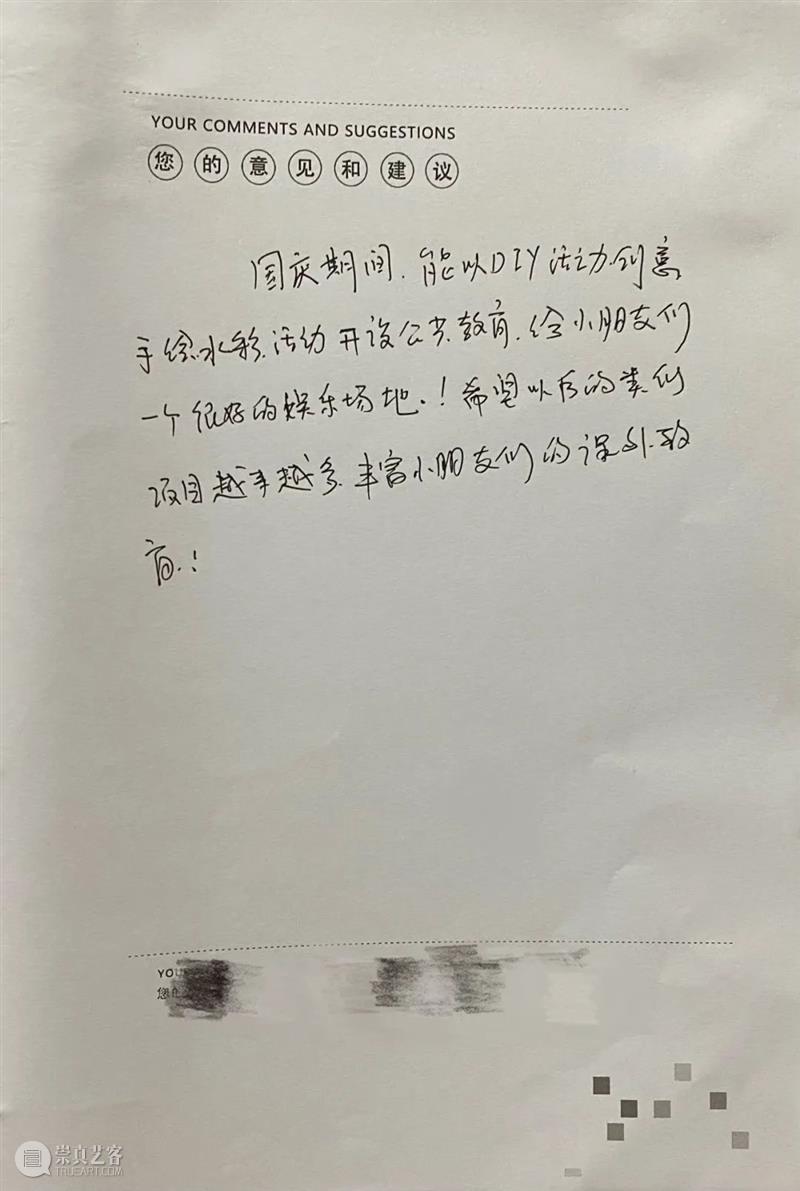 YOUR COMMENTS AND SUGGESTIONS
您的意见和建议
国庆期间,能以DIY活动创意
手绘水彩活动开设公共教育,给小朋友们
一个很好的娱乐场地。!希望以后的类似
项目越来越多,丰富小朋友们的课外教
育.!
YOU
您的
崇真艺客
TRUEART.COM